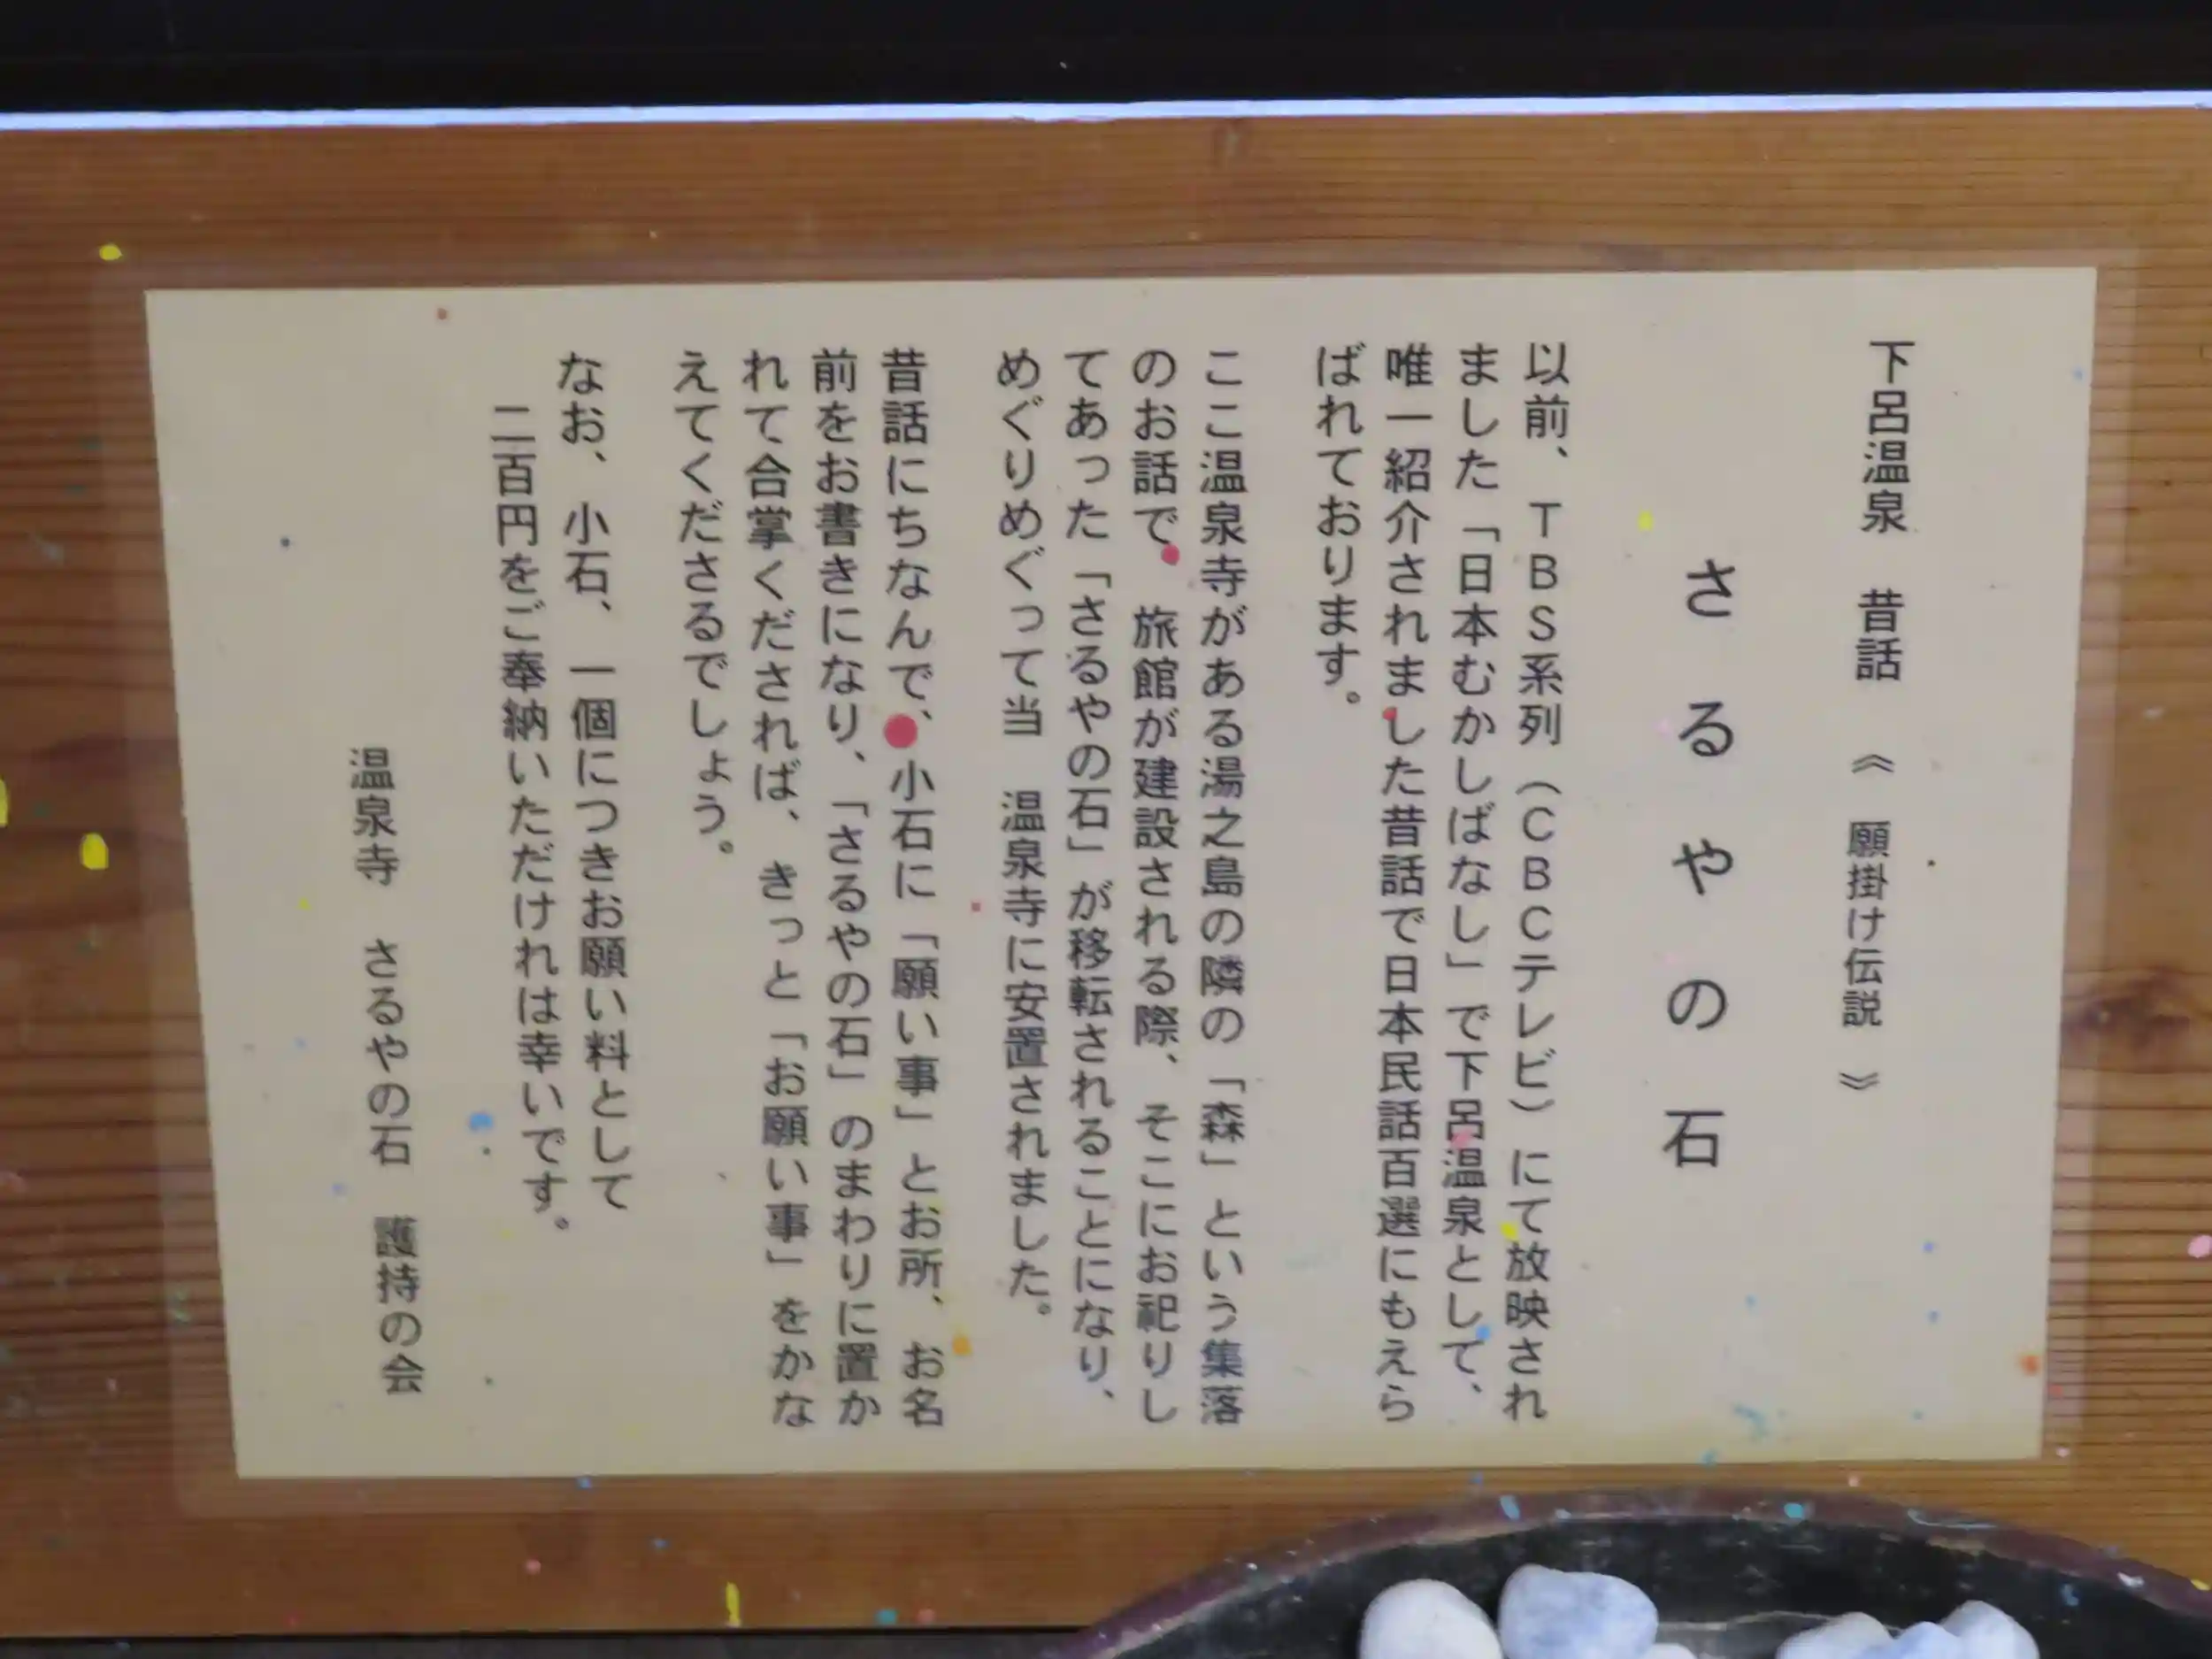 下呂温泉　昔話　《　願掛け伝説　》
さるやの石
以前、ＴＢＳ系列（ＣＢＣテレビ）にて放映され
ました「日本むかしばなし」で下呂温泉として、
唯一紹介されました昔話で日本民話百選にもえら
ばれております。
ここ温泉寺がある湯之島の隣の「森」という集落
のお話で　旅館が建設される際、そこにお祀りし
てあった「さるやの石」が移転されることになり、
めぐりめぐって当　温泉寺に安置されました。
昔話にちなんで、小石に「願い事」とお所、お名
前をお書きになり、「さるやの石」のまわりに置か
れて合掌くだされば、きっと「お願い事」をかな
えてくださるでしょう。
なお、小石、一個につきお願い料として
二百円をご奉納いただければ幸いです。
温泉寺　さるやの石　護持の会